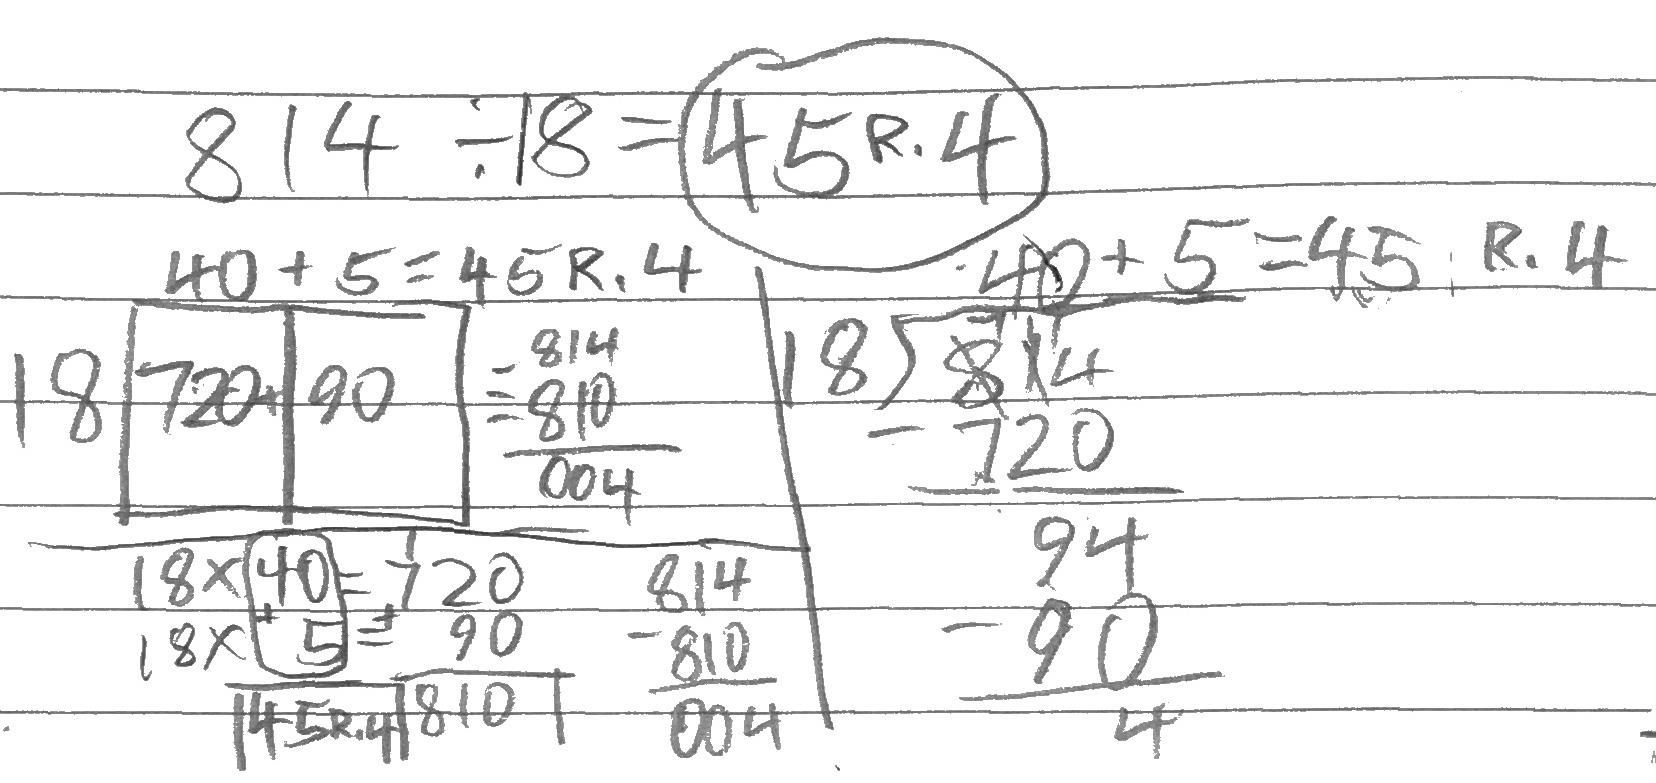 814 ÷ 18 = 45 R. 4
40 + 5 = 45 R. 4
18 720 + 90
814
- 810
004
18 × 40 = 720
+ +
18 × 5 = 90
45 R. 4 810
814
- 810
004
40 + 5 = 45 R. 4
7 1
18 ) 814
- 720
94
- 90
4